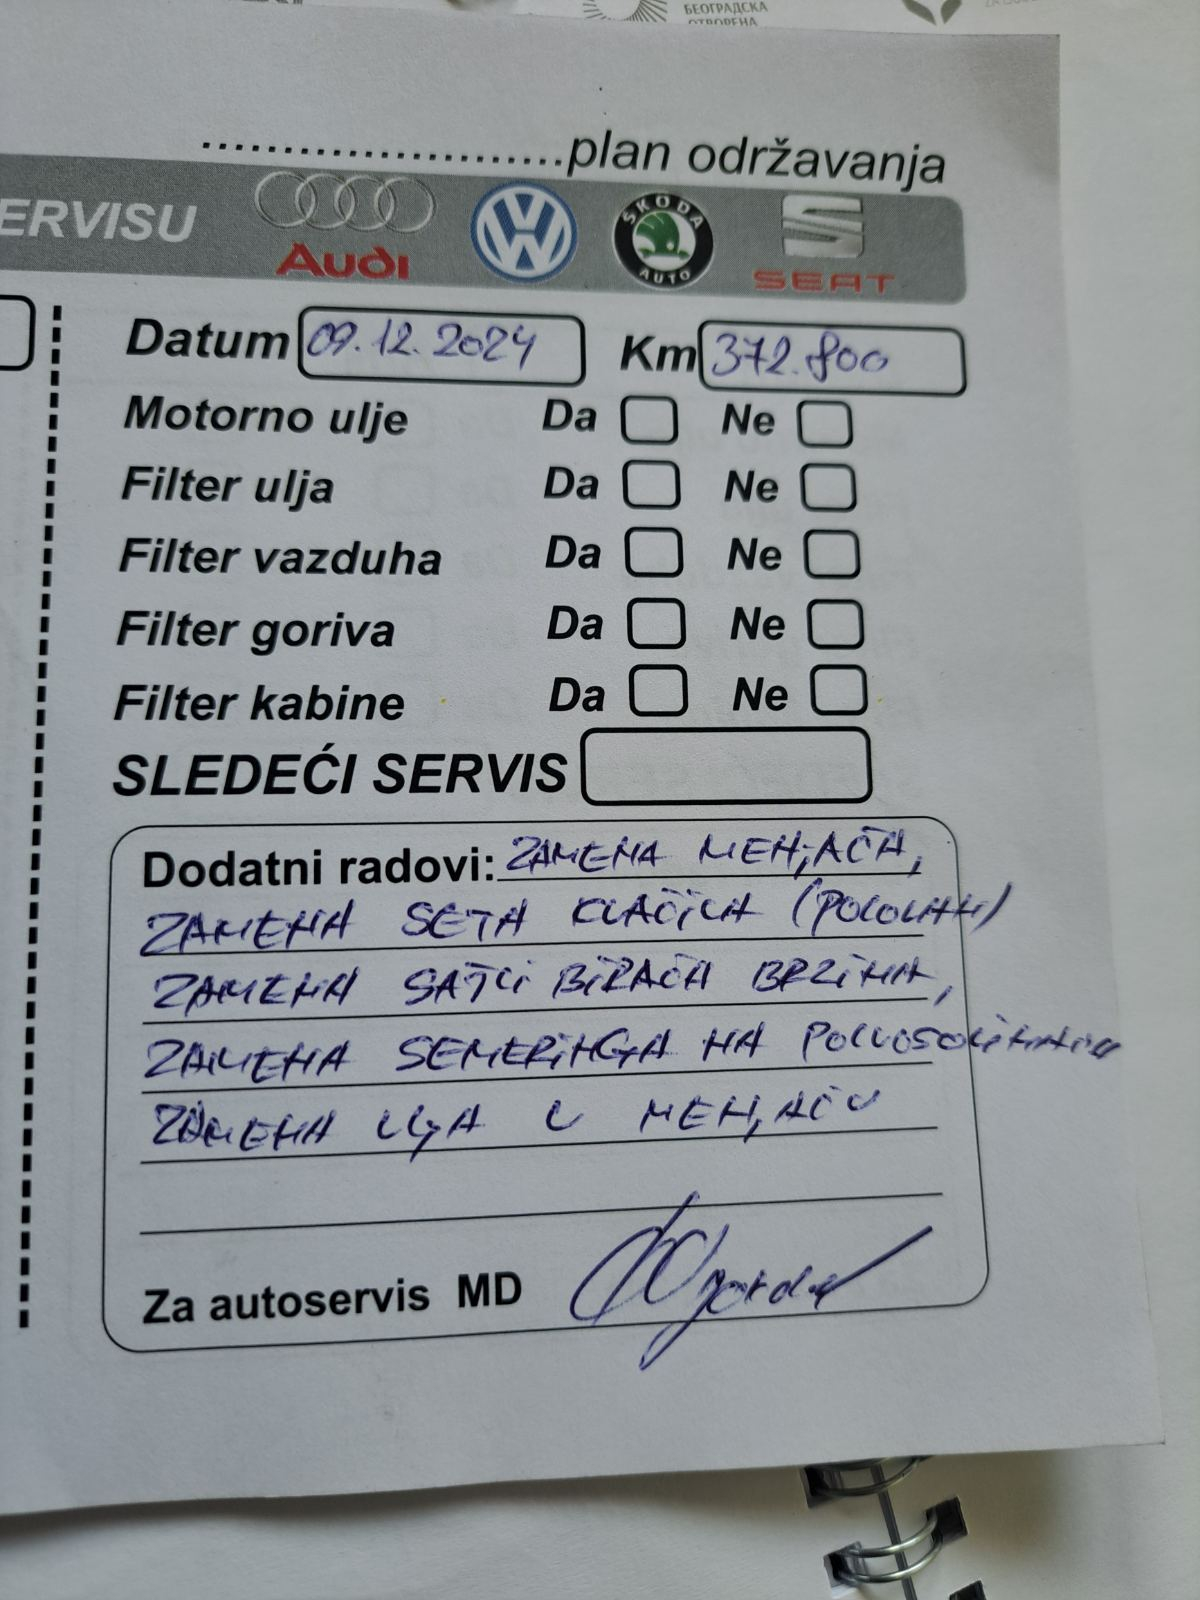 БЕОГРАДСКА
ОТВОРЕНА
.......................plan održavanja
ERVISU
Audi
ŠKODA
AUTO
SEAT
Datum 09.12.2024 Km 372.800
Motorno ulje Da Ne
Filter ulja Da Ne
Filter vazduha Da Ne
Filter goriva Da Ne
Filter kabine Da Ne
SLEDEĆI SERVIS
Dodatni radovi: ZAMENA MENJAČA,
ZAMENA SETA KVAČILA (POLOVAN)
ZAMENA SAJLI BIRAČA BRZINA,
ZAMENA SEMERINGA NA
ZAMENA ULJA U MENJAČU
Za autoservis MD